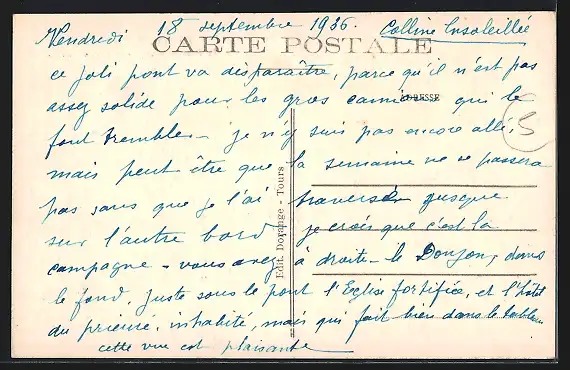 Vendredi 18 septembre 1936. Colline Ensoleillée
CARTE POSTALE
ce joli pont va disparaître, parce qu'il n'est pas
ADRESSE
assez solide pour les gros camions qui le
font trembler - je n'y suis pas encore allé,
mais peut être que la semaine ne se passera
pas sans que je l'ai traversé jusque
sur l'autre bord je crois que c'est la
campagne - vous avez à droite - le Donjon, dans
le fond, juste sous le pont l'Eglise fortifiée, et l'hôtel
du prieuré, inhabité, mais qui fait bien dans le tableau
cette vue est plaisante
Edit. Dorange - Tours
5